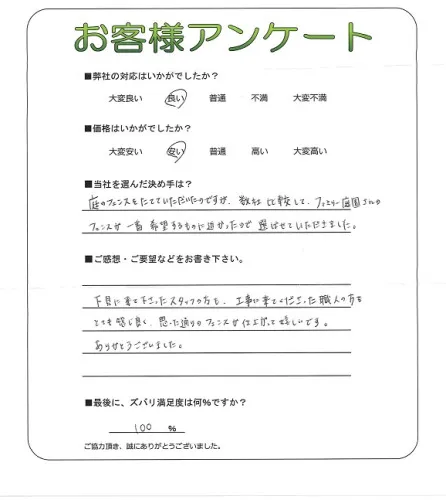 お客様アンケート
■弊社の対応はいかがでしたか？
大変良い 良い 普通 不満 大変不満
■価格はいかがでしたか？
大変安い 安い 普通 高い 大変高い
■当社を選んだ決め手は？
庭のフェンスをたてていただいたのですが、数社比較して、ファミリー庭園さんの
フェンスが一番希望するものに近かったので選ばせていただきました。
■ご感想・ご要望などをお書き下さい。
下見に来て下さったスタッフの方も、工事に来てくださった職人の方も
とても感じ良く、思った通りのフェンスが仕上がって嬉しいです。
ありがとうございました。
■最後に、ズバリ満足度は何%ですか？
100 %
ご協力頂き、誠にありがとうございました。